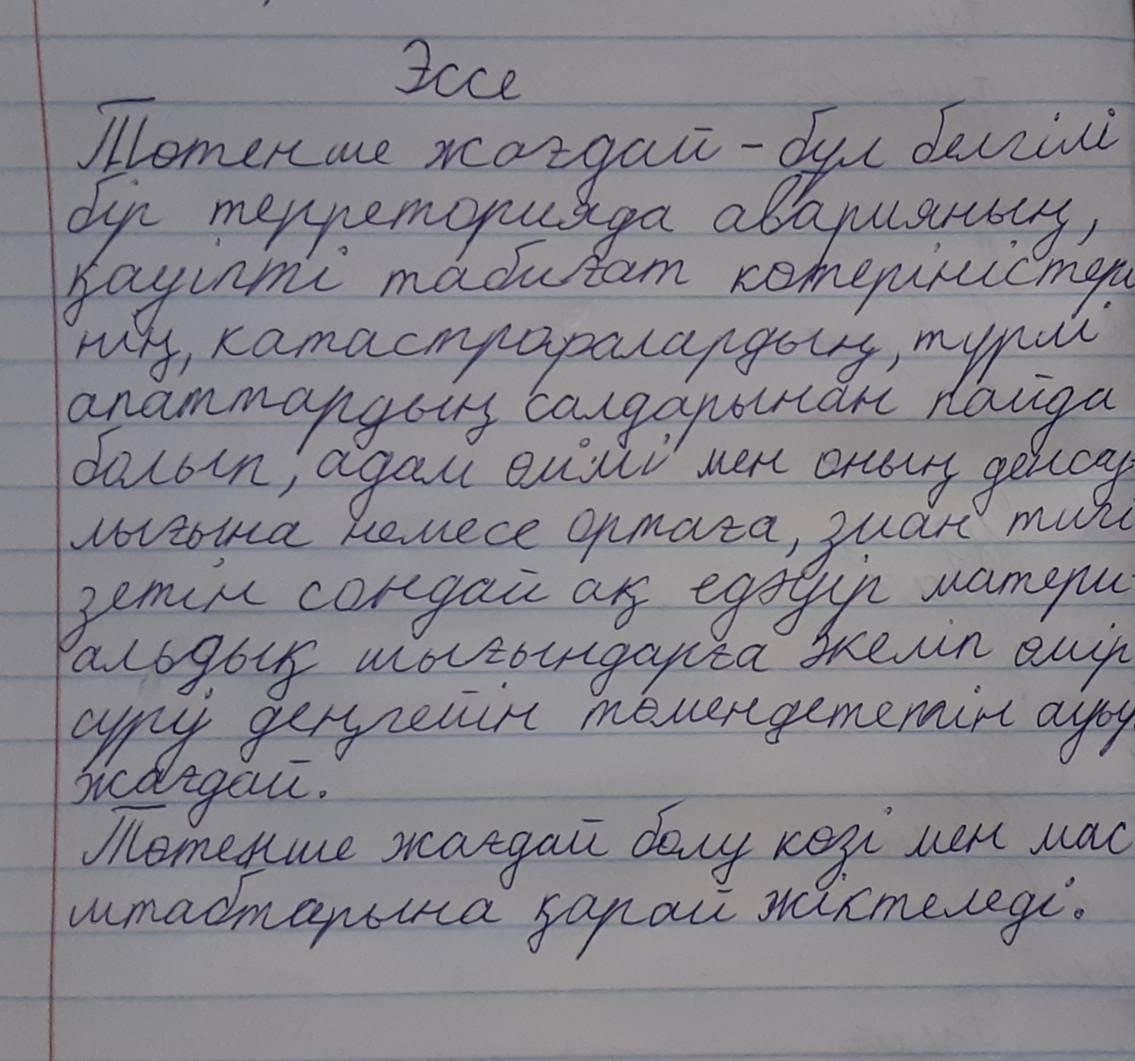 Эссе
Төтенше жағдай - бұл белгілі
бір терреторияда аварияның,
қауіпті табиғат көтеріністері
нің, катастрофалардың, түрлі
апаттардың салдарынан пайда
болып, адам өлімі мен оның денсау
лығына немесе ортаға, зиан тигі
зетін сондай ақ едәуір матери
альдық шығындарға әкеліп өмір
сүрү деңгейін төмендететін ауыр
жағдай.
Төтенше жағдай болу көзі мен мас
штабтарына қарай жіктеледі.